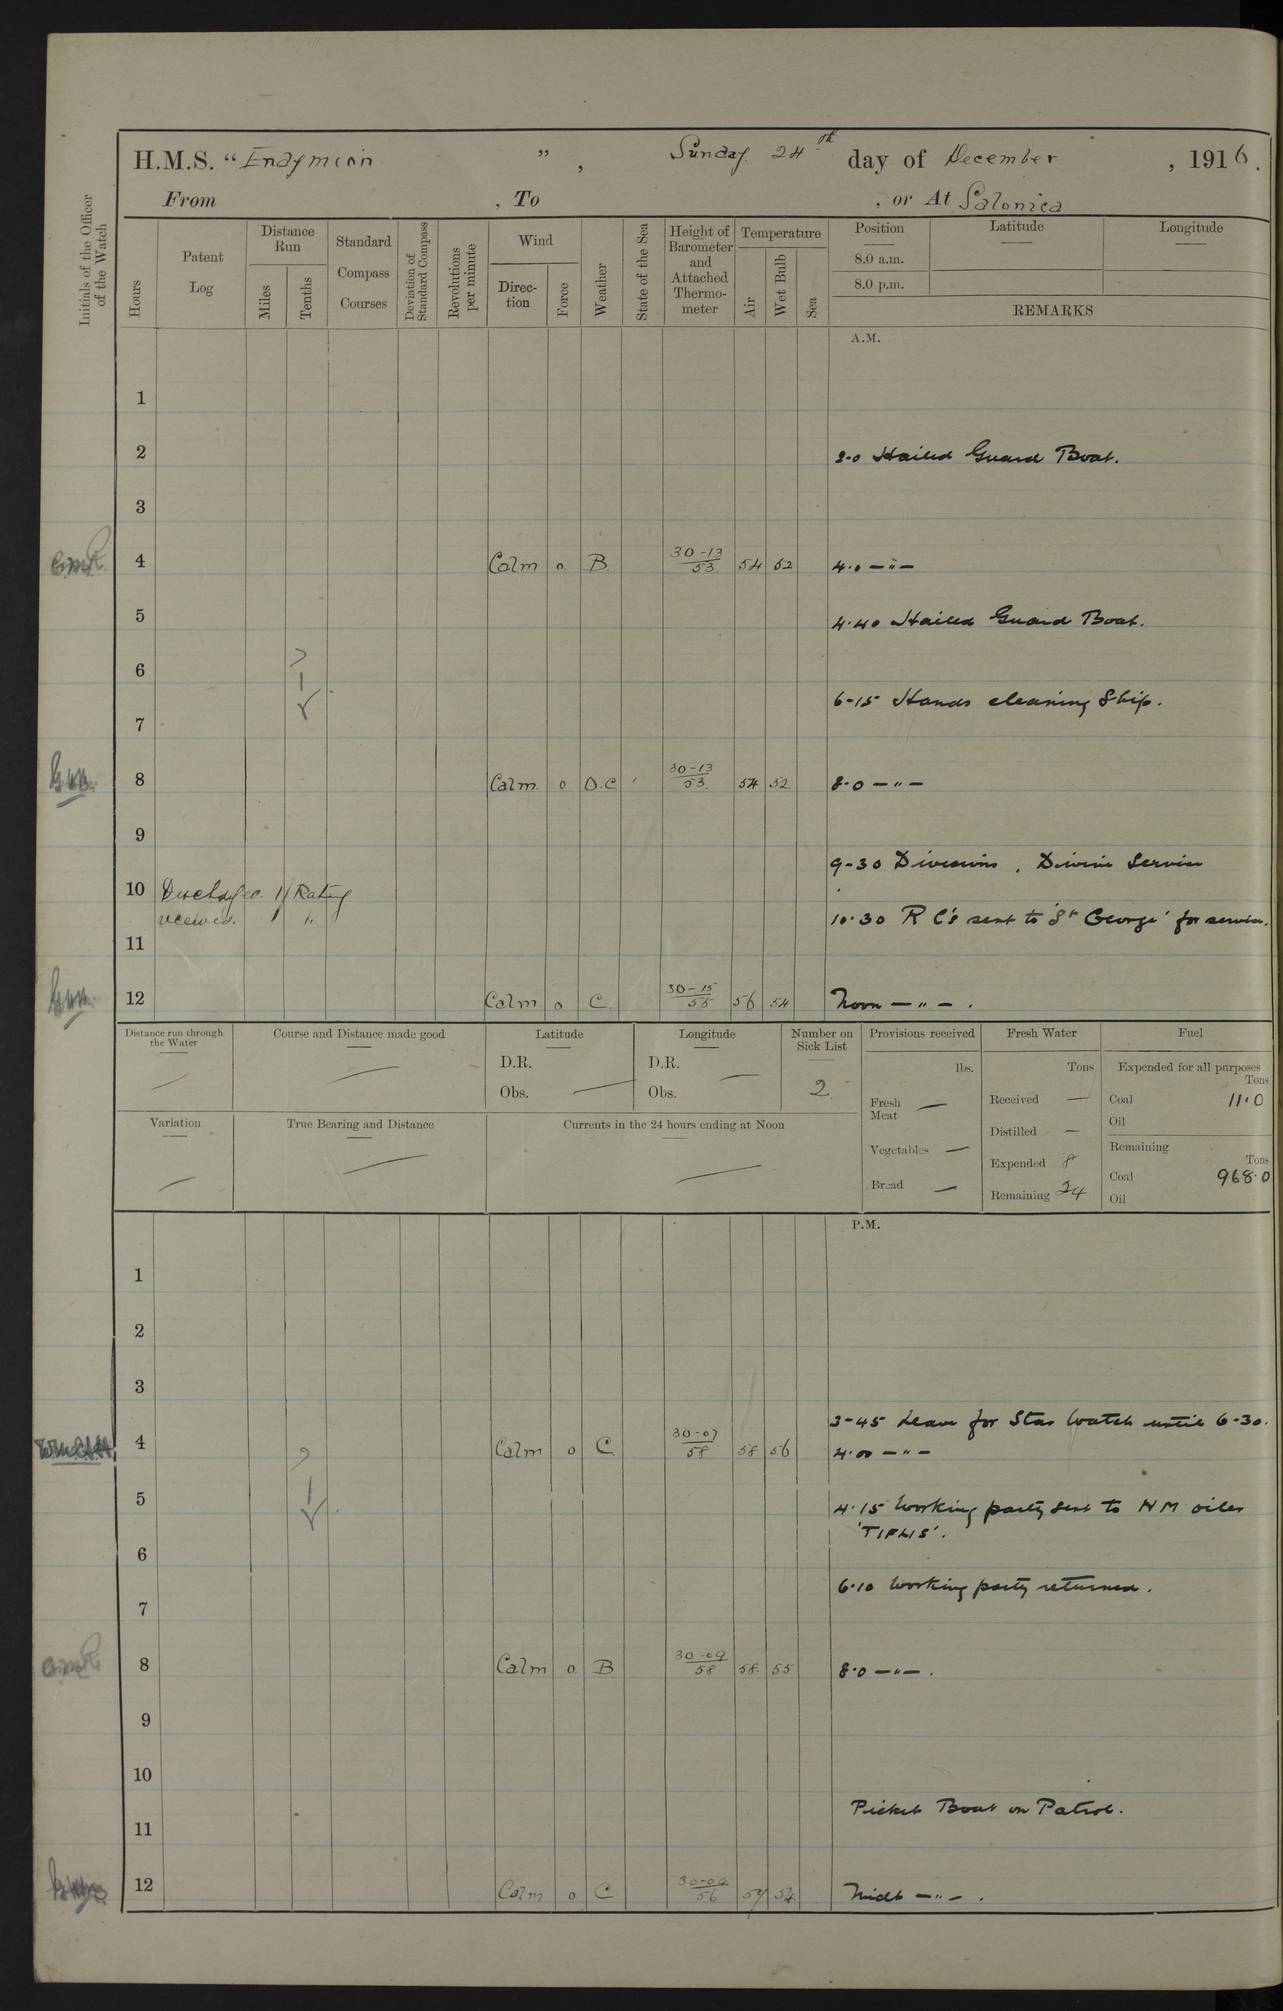 H.M.S. “Endymion ”, Sunday 24th day of December, 1916.
From , To , or At Salonica
Initials of the Officer of the Watch
Hours
Patent Log
Distance Run
Miles
Tenths
Standard Compass Courses
Deviation of Standard Compass
Revolutions per minute
Wind
Direction
Force
Weather
State of the Sea
Height of Barometer and Attached Thermometer
Temperature
Air
Wet Bulb
Sea
Position Latitude Longitude
8.0 a.m.
8.0 p.m.
REMARKS
A.M.
1
2 2-0 Hailed Guard Boat.
3
4 Calm 0 B. 30-13/53 54 52 4.0 — " —
5 4.40 Hailed Guard Boat.
6
6-15 Hands cleaning Ship.
7
8 Calm 0 O.C 30-13/53 54 52 8.0 — " —
9
9-30 Divisions, Divine Service
10 Discharged. 1 Rating
received. 1 " 10.30 R C's sent to 'St George' for service.
11
12 Calm 0 C. 30-15/55 56 54 Noon — " — .
Distance run through the Water
Course and Distance made good
Latitude
D.R.
Obs. —
Longitude
D.R.
Obs. —
Number on Sick List
2
Provisions received
lbs.
Fresh Meat —
Vegetables —
Bread —
Fresh Water
Tons
Received —
Distilled —
Expended 8
Remaining 24
Fuel
Expended for all purposes
Tons
Coal 11.0
Oil
Remaining
Tons
Coal 968.0
Oil
Variation
True Bearing and Distance
Currents in the 24 hours ending at Noon
P.M.
1
2
3
3-45 Leave for Star Watch until 6-30.
4 Calm 0 C 30-07/58 58 56 4.00 — " —
5 4.15 Working party sent to HM oiler
'TIFLIS'.
6
6.10 Working party returned.
7
8 Calm 0 B 30-09/58 58 55 8.0 — " — .
9
10
Picket Boat on Patrol.
11
12 Calm 0 C 56 54 Midt — " — .